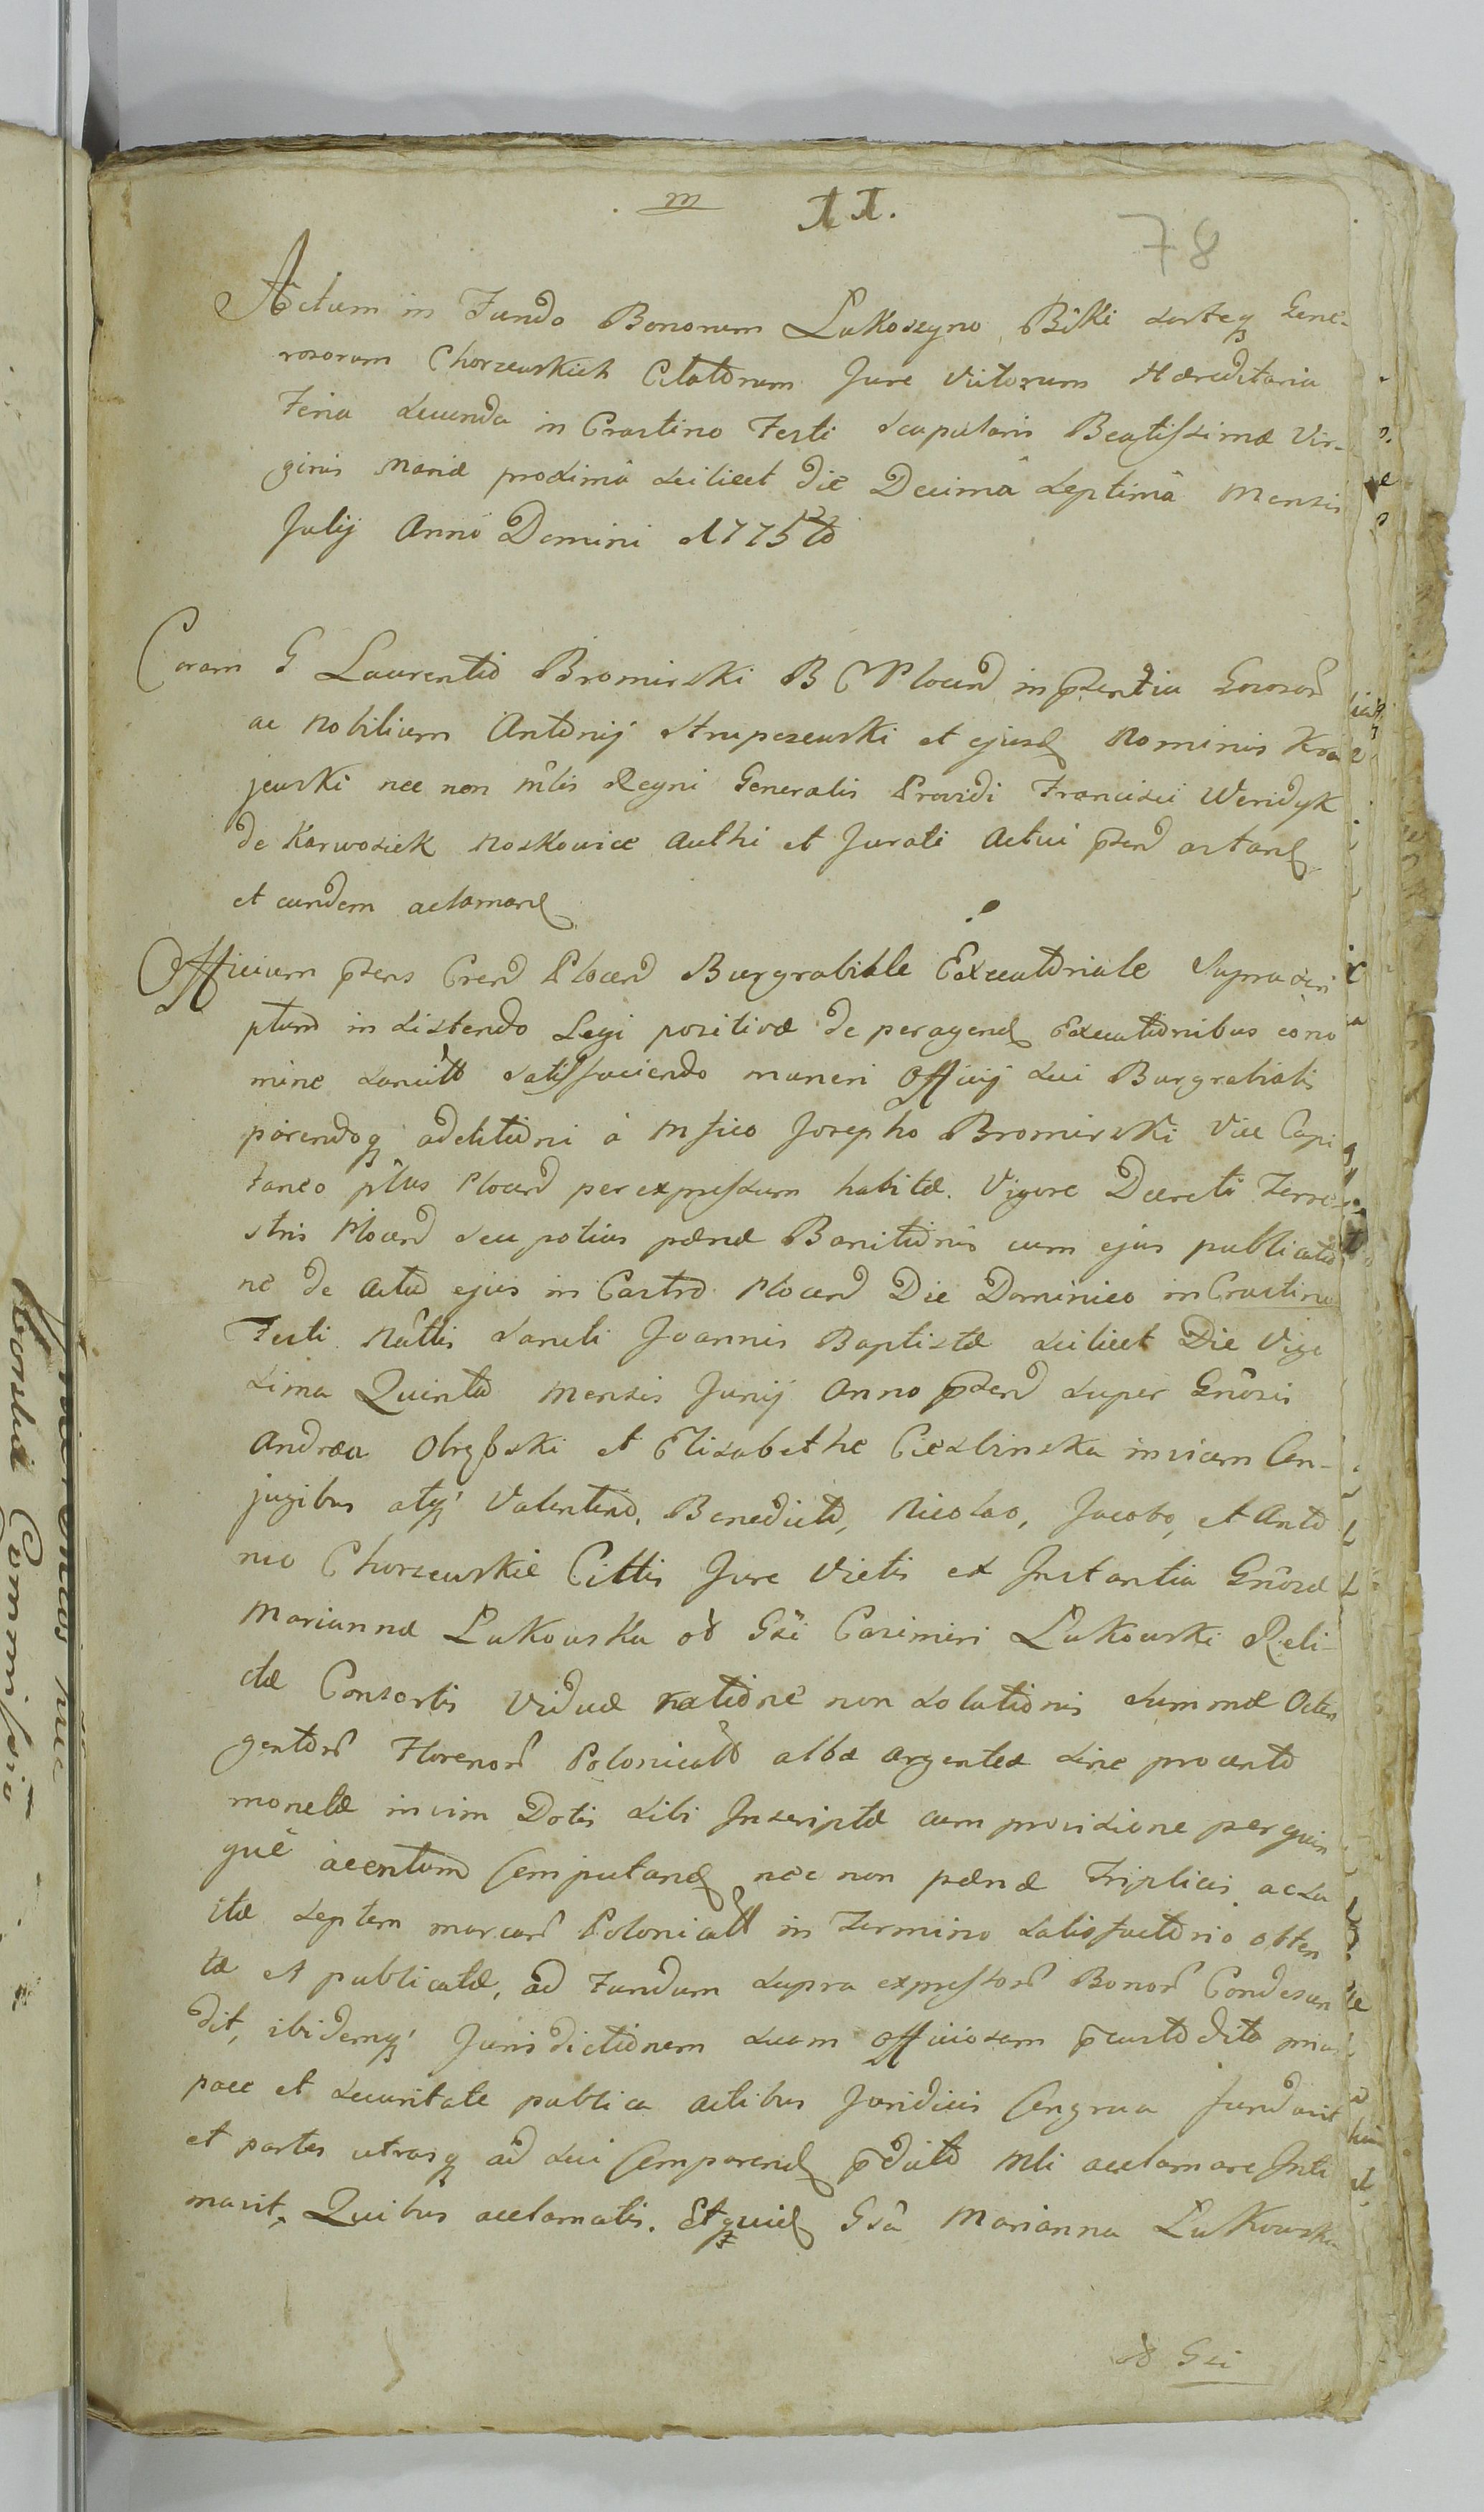 m II. 78
Actum in Fundo Bonorum Lukoszyno Biki sorteq Gene-
rosorum Chorzewskich Citatorum Jure Victorum Hæreditaria
Feria Secunda in Crastino Festi Scapularis Beatissimæ Vir-
ginis Mariæ proximâ scilicet die Decimâ Septimâ Mensis
Julij Anno Domini 1775to
Coram G Laurentio Bromirski B C Plocen in psentia Gnosor
ac Nobilium Antonij Strupczewski et ejusd Nominis Kra
jewski nec non Mlis Regni Generalis Providi Francisci Weridyk
de Karwosiek Noskowice Authi et Jurati Actui psen astan
et eundem aclaman
Officium psens Cren Plocen Burgrabiale Executoriale Suprascri
ptum insistendo Legi positivæ de peragend Executionibus eo no
mine sancitt satisfaciendo muneri Officij sui Burgrabialis
parendoq adcitationi à Mfico Josepho Bromirski Vice Capi
taneo ptus Plocen per expressum habitæ. Vigore Decreti Terre
stris Plocen seu potius pænæ Banitionis cum ejus publicatio
ne de Actu ejus in Castro Plocen Die Dominico in Crastino
Festi Nattis Sancti Joannis Baptistæ scilicet Die Vige
sima Quinta Mensis Junij Anno psen super Gnosis
Andrea Obrębski et Elisabethe Cieslinska invicem Con-
jugibus atq Valentino, Benedicto, Nicolao, Jacobo, et Anto
nio Chorzewskie Cittis Jure Victis ex Instantia Gnosæ
Mariannæ Lukowska od Gsi Casimiri Lukowski Reli-
ctæ Consortis Viduæ ratione non solutionis summæ Octin
gentor Florenor Polonicatt albæ argenteæ sine procento
monetæ in vim Dotis sibi Inscriptæ cum provisione per quin
que à centum Computand nec non pænæ Triplicis acsu
itæ septem marcar Polonicatt in Termino satisfactorio obten
tæ et publicatæ, ad Fundum supra expressor Bonor Condescen
dit, ibidemq Jurisdictionem suam officiosam pcustodita prius
pace et securitate publica actibus Juridicis Congrua fundavit
et partes utrasq ad sui Comparend pdicto Mli acclamare Inti
mavit, Quibus acclamatis. Et quid Gsa Marianna Lukowska
od Gsi